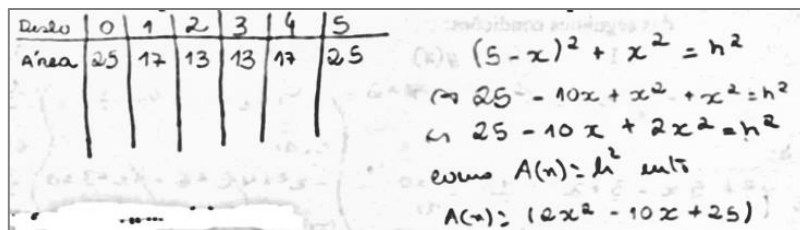 Deslo | 0 | 1 | 2 | 3 | 4 | 5
Área | 25 | 17 | 13 | 13 | 17 | 25
(5 - x)² + x² = h²
⇔ 25 - 10x + x² + x² = h²
⇔ 25 - 10x + 2x² = h²
como A(x) = h² então
A(x) = (2x² - 10x + 25)